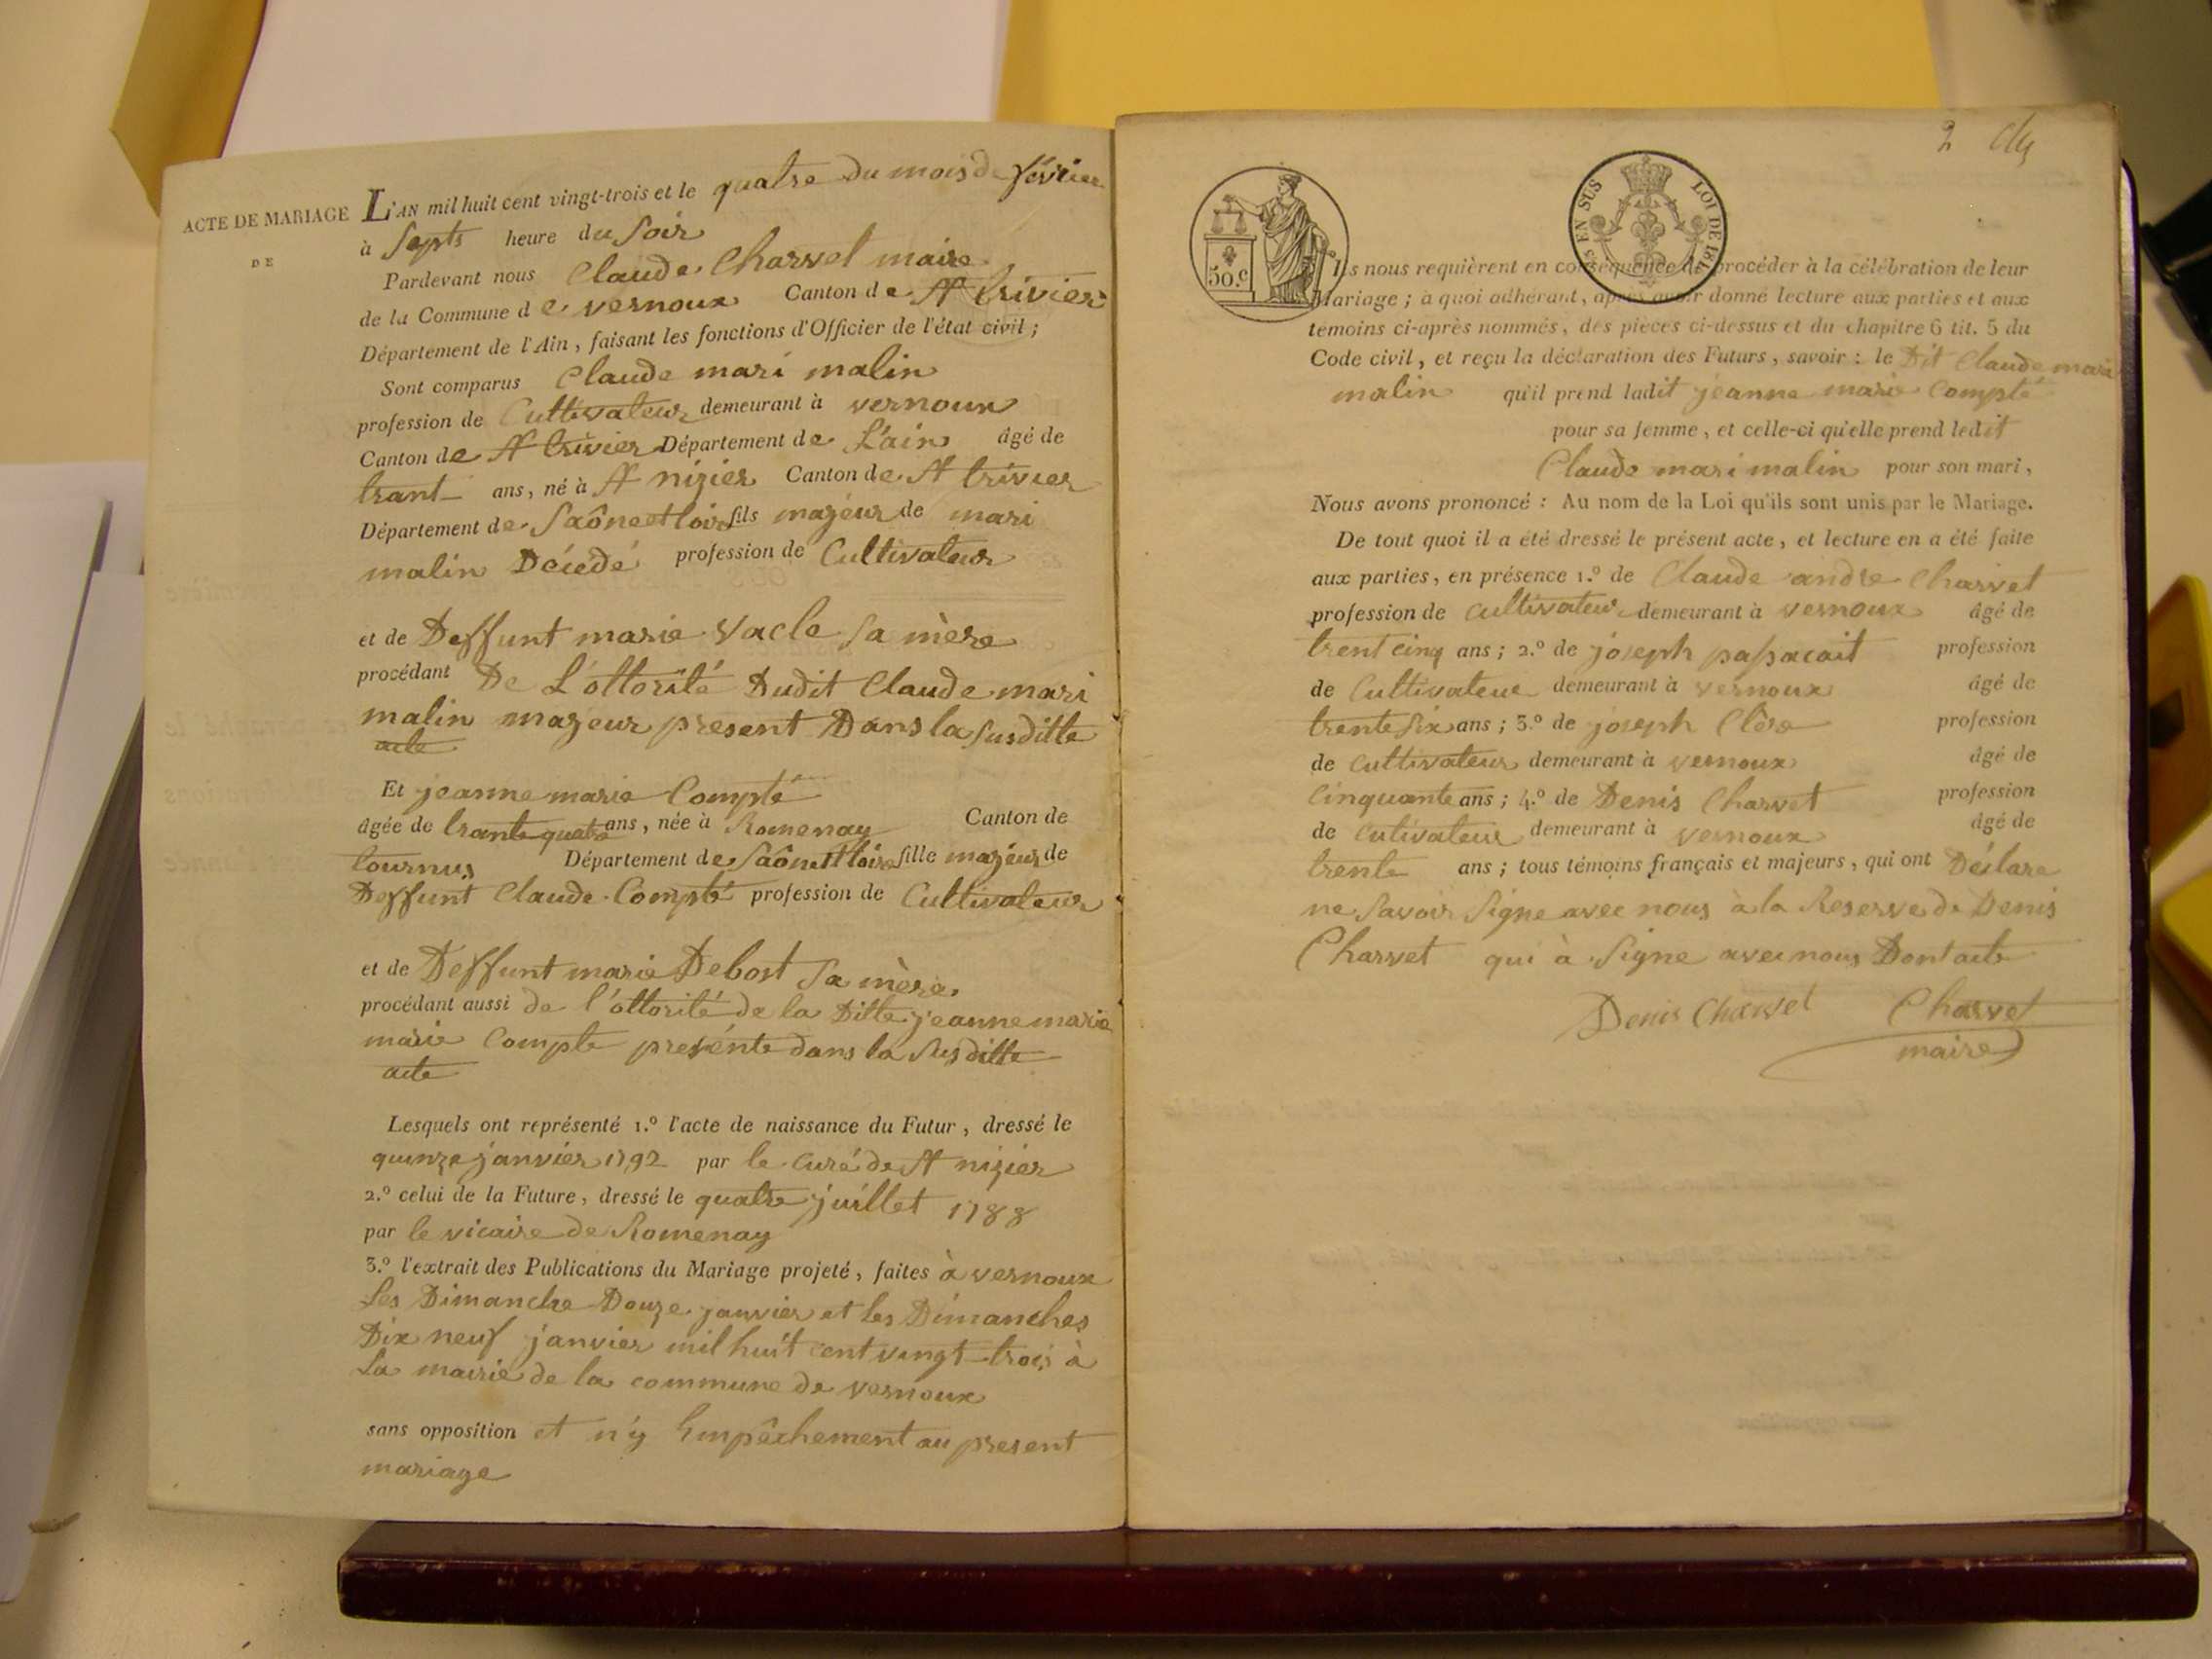 ACTE DE MARIAGE
DE
L'AN mil huit cent vingt-trois et le quatre du mois de février
à septs heure du soir
Pardevant nous Claude Charvet maire
de la Commune de vernoux Canton de St trivier
Département de l'Ain, faisant les fonctions d'Officier de l'état civil;
Sont comparus Claude mari malin
profession de Cultivateur demeurant à vernoux
Canton de St trivier Département de L'ain âgé de
trant ans, né à St nizier Canton de St trivier
Département de Saône et loir fils majeur de mari
malin Décédé profession de Cultivateur
et de Deffunt marie Vacle sa mère
procédant De L'ottorité Dudit Claude mari
malin majeur present Dans la susditte
acte
Et jeanne marie Compté
âgée de trante quatre ans, née à Romenay Canton de
tournus Département de Saône et loire fille majeur de
Deffunt Claude Compté profession de Cultivateur
et de Deffunt marie Debost sa mère
procédant aussi de l'ottorité de la Ditte jeanne marie
marie Compte presénte dans la susditte
acte
Lesquels ont représenté 1.º l'acte de naissance du Futur, dressé le
quinze janvier 1792 par le curé de St nizier
2.º celui de la Future, dressé le quatre juillet 1788
par le vicaire de Romenay
3.º l'extrait des Publications du Mariage projeté, faites à vernoux
Les Dimanche Douze janvier et les Dimanches
Dix neuf janvier mil huit cent vingt-trois à
La mairie de la commune de vernoux
sans opposition et n'y Empêchement au present
mariage
2
50.c
EN SUS LOI DE
Ils nous requièrent en conséquence de procéder à la célébration de leur
Mariage; à quoi adhérant, après avoir donné lecture aux parties et aux
témoins ci-après nommés, des pièces ci-dessus et du chapitre 6 tit. 5 du
Code civil, et reçu la déclaration des Futurs, savoir: le Dit Claude mari
malin qu'il prend ladit jeanne marie Compté
pour sa femme, et celle-ci qu'elle prend ledit
Claude mari malin pour son mari,
Nous avons prononcé: Au nom de la Loi qu'ils sont unis par le Mariage.
De tout quoi il a été dressé le présent acte, et lecture en a été faite
aux parties, en présence 1.º de Claude andre Charvet
profession de cultivateur demeurant à vernoux âgé de
trent cinq ans; 2.º de joseph profession
de Cultivateur demeurant à vernoux âgé de
trente six ans; 3.º de joseph profession
de cultivateur demeurant à vernoux âgé de
Cinquante ans; 4.º de Denis Charvet profession
de cutivateur demeurant à vernoux âgé de
trente ans; tous témoins français et majeurs, qui ont Déclare
ne savoir signe avec nous à la Reserve de Denis
Charvet qui à signe avec nous Dont acte
Denis Charvet Charvet
maire